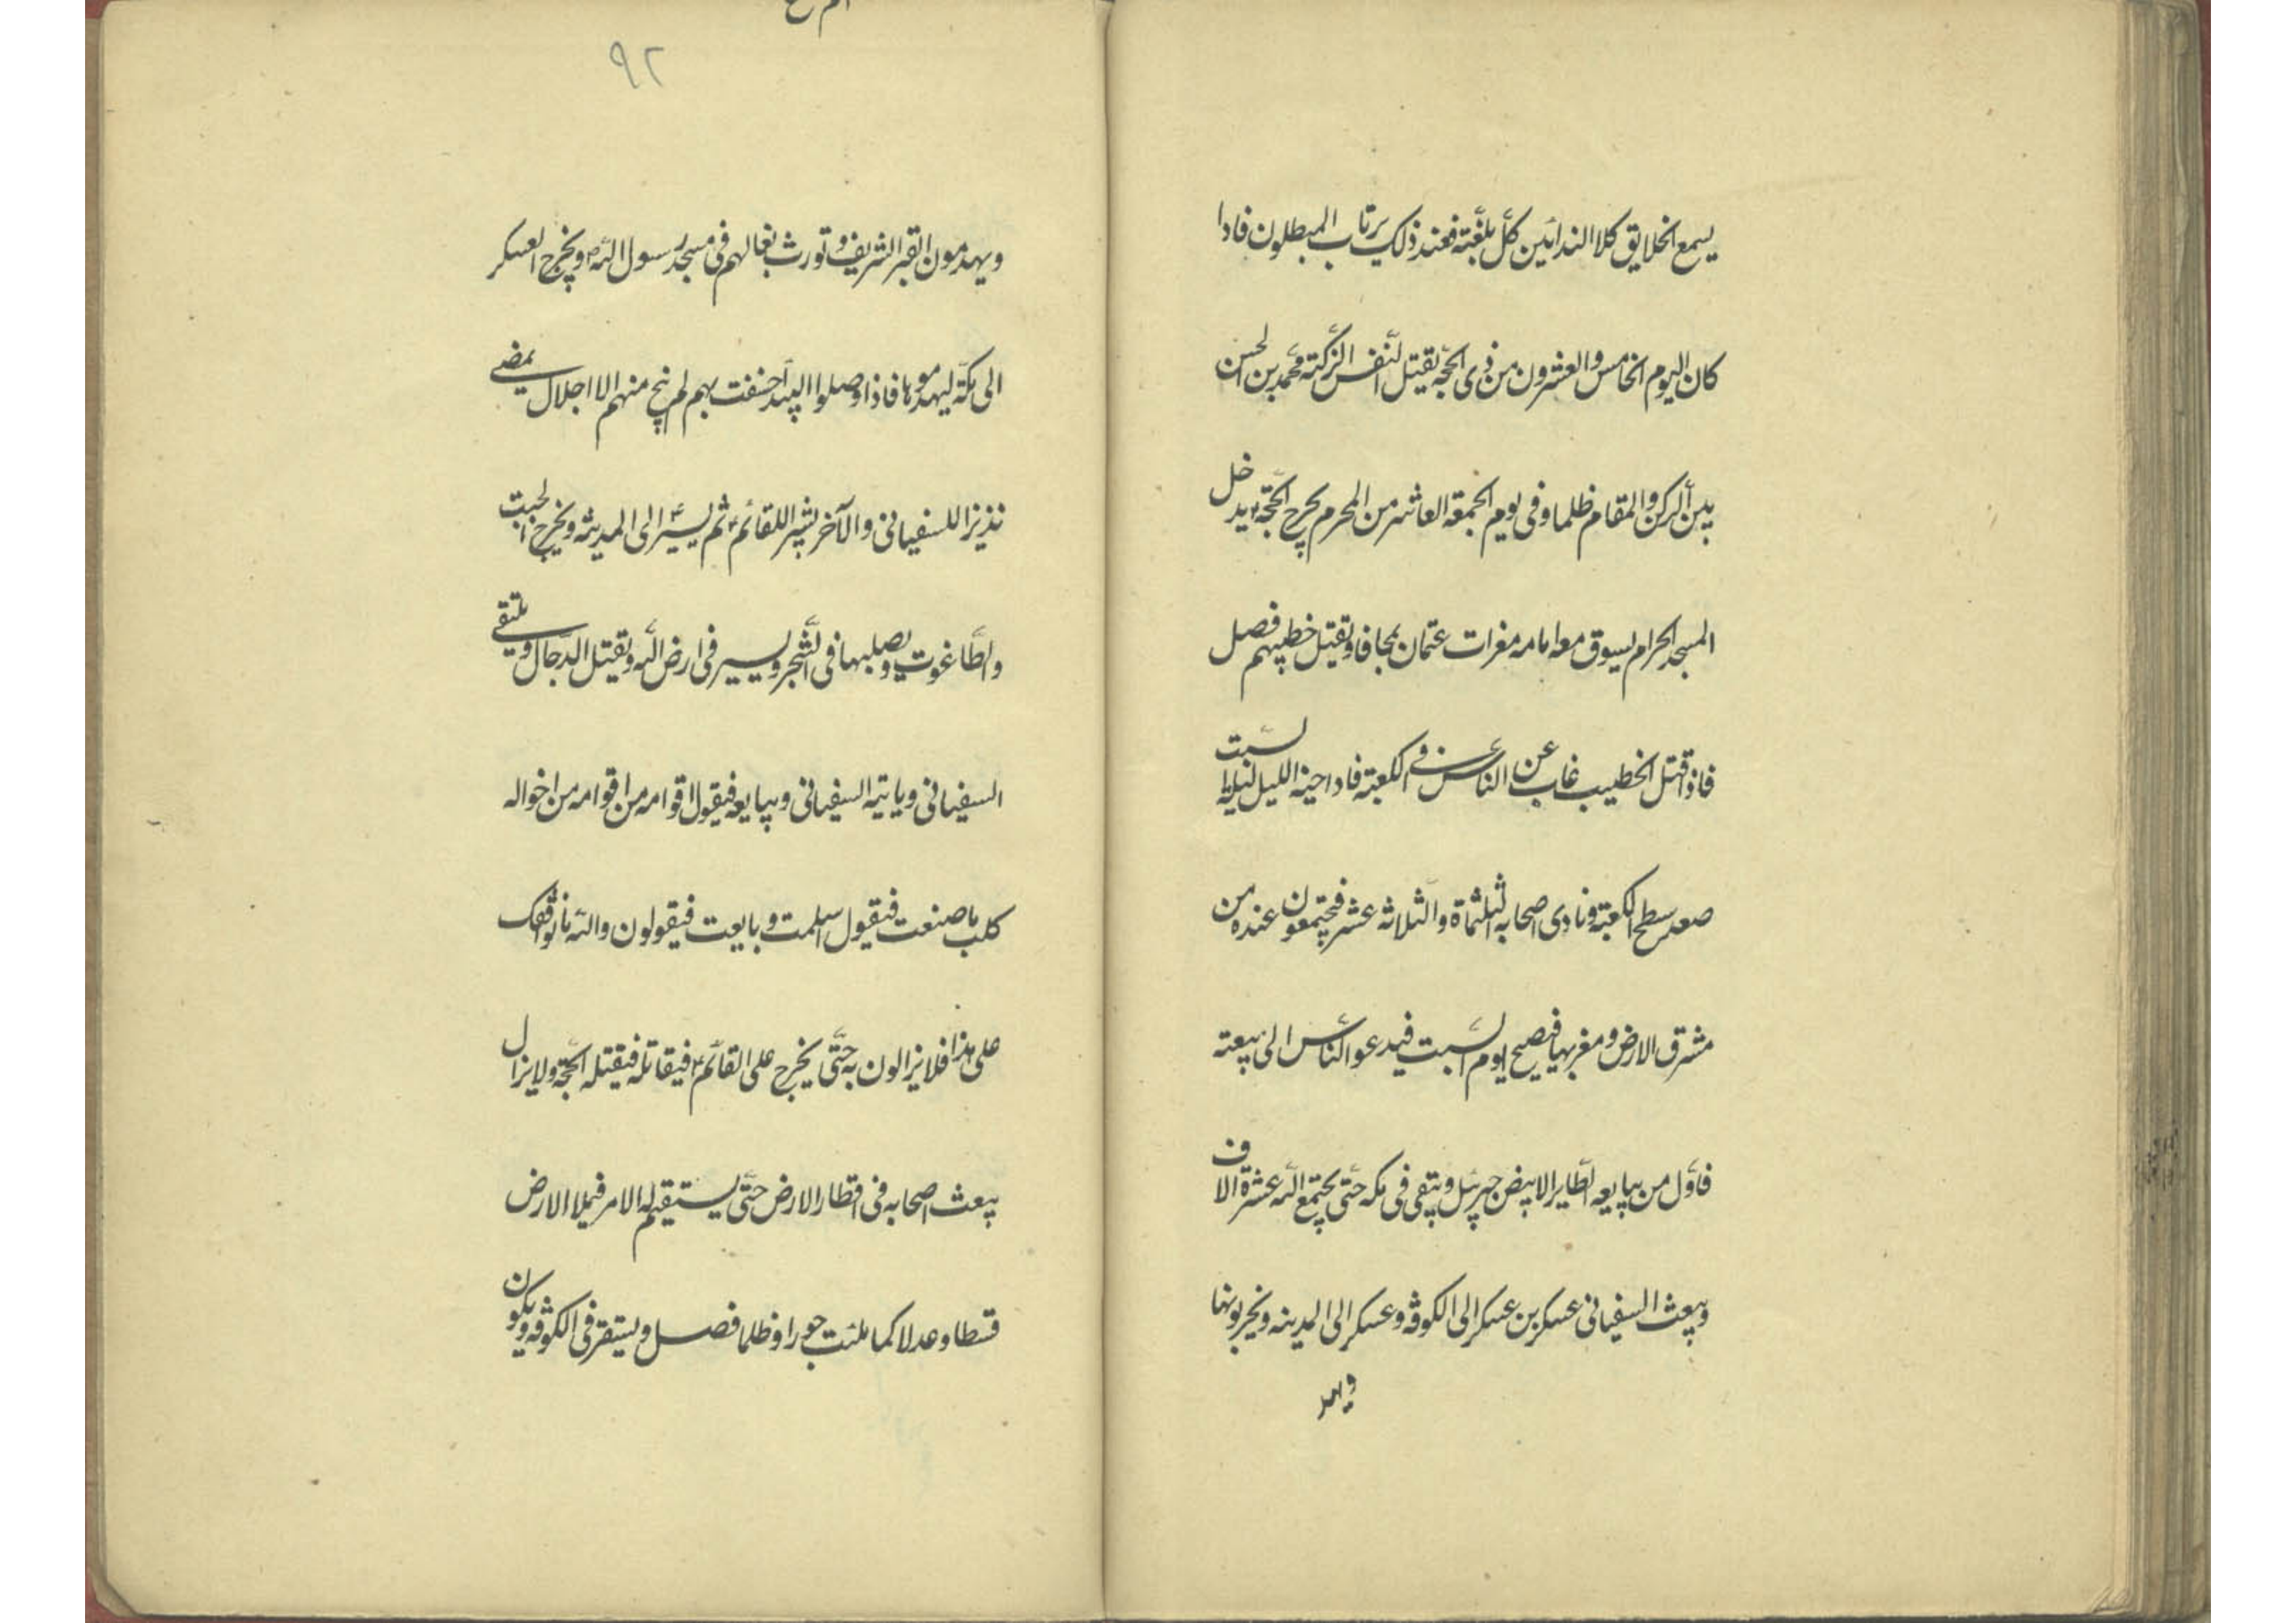 يسمع الخلايق كلا الندائين كلّ بلغته فعند ذلك يرتاب المبطلون فاذا
كان اليوم الخامس والعشرون من ذى الحجّه يقتل النّفس الزّكيّه محمّد بن الحسن
بين الركن والمقام ظلما وفى يوم الجمعة العاشر من المحرم يخرج الحجّة ؑ يدخل
المسجد الحرام يسوق معه امامه عنزات عثمان عجافا ويقتل خطيبهم فصل
فاذا قتل الخطيب غاب عن الناس فى الكعبة فاذا جنه الليل ليلة السّبت
صعد سطح الكعبة ونادى اصحابه الثلثمأة والثلاثه عشر فيجتمعون عنده من
مشرق الارض ومغربها فيصبح يوم السّبت فيدعو النّاس الى بيعته
فاوّل من يبايعه الطّاير الابيض جبرئيل ويبقى فى مكه حتّى يجتمع اليه عشرة الاف
ويبعث السفيانى عسكرين عسكر الى الكوفة وعسكر الى المدينه ويخربونها
ويهد
٩٢
ويهدمون القبر الشريف وتورث بغالهم فى مسجد رسول اللّه ص ويخرج العسكر
الى مكّة ليهدموها فاذا وصلوا البيدا خسفت بهم لم ينج منهم الا اجلان يمضى
نذيرا للسفيانى والآخر بشيرا للقائم ؑ ثم يسير ؑ الى المدينة ويخرج الجبت
والطّاغوت ويصلبها فى الشّجر ويسير فى ارض اللّه ويقتل الدّجال ويلتقى
السفيانى وياتيه السفيانى ويبايعه فيقول اقوامه من اقوامه من اخواله
كلب ما صنعت فيقول اسلمت وبايعت فيقولون واللّه ما نوافقك
على هذا فلا يزالون به حتّى يخرج على القائم ؑ فيقاتله فيقتله الحجّة ولا يزال
يبعث اصحابه فى اقطار الارض حتّى يستقيم له الامر فيملا الارض
قسطا وعدلا كما ملئت جورا وظلما فصل ويستقر فى الكوفه ويكون